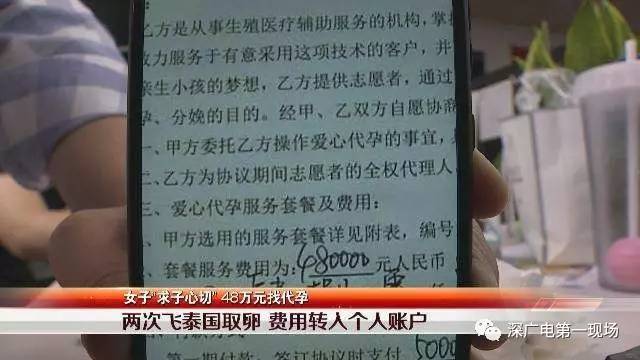 乙方是从事生殖医疗辅助服务的机构,掌
致力服务于有意采用这项技术的客户,并
亲生小孩的梦想,乙方提供志愿者,通过
孕、分娩的目的。经甲、乙双方自愿协商
一、甲方委托乙方操作爱心代孕的事宜,
二、乙方为协议期间志愿者的全权代理人
三、爱心代孕服务套餐及费用:
、甲方选用的服务套餐详见附表,编号
、套餐服务费用为:480000元人民币
女子"求子心切" 48万元找代孕
两次飞泰国取卵 费用转入个人账户
深广电第一现场
第一期付款:签订协议时支付 5000